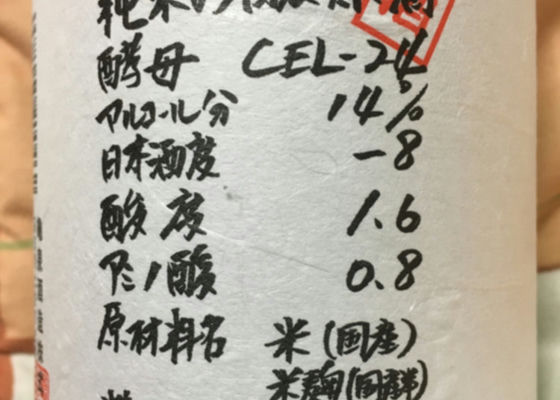 酵母 CEL-24
アルコール分 14%
日本酒度 -8
酸度 1.6
アミノ酸 0.8
原材料名 米(国産)
米麹(国産)